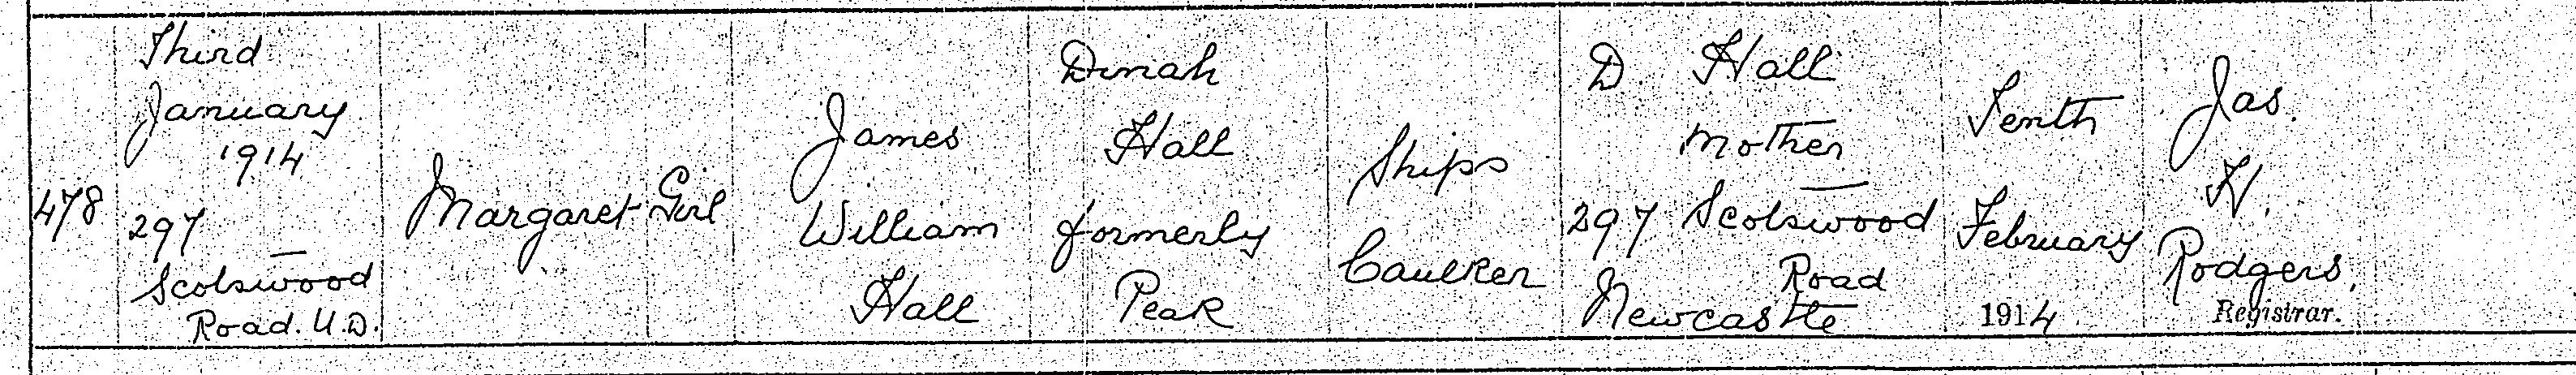 478
Third
January
1914
297
Scotswood
Road. U.D.
Margaret
Girl
James
William
Hall
Dinah
Hall
formerly
Peak
Ships
Caulker
D Hall
Mother
297 Scotswood
Road
Newcastle
Tenth
February
1914
Jas.
H.
Rodgers,
Registrar.